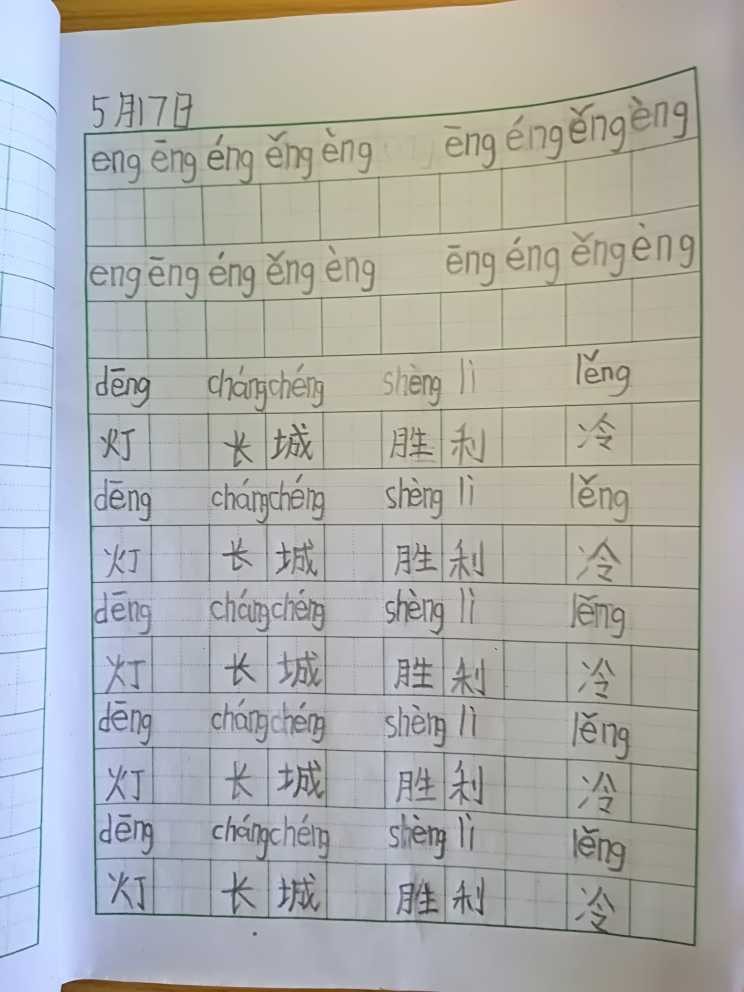 5月17日
eng ēng éng ěng èng ēng éng ěng èng
eng ēng éng ěng èng ēng éng ěng èng
dēng chángchéng shèng lì lěng
灯 长城 胜利 冷
dēng chángchéng shèng lì lěng
灯 长城 胜利 冷
dēng chángchéng shèng lì lěng
灯 长城 胜利 冷
dēng chángchéng shèng lì lěng
灯 长城 胜利 冷
dēng chángchéng shèng lì lěng
灯 长城 胜利 冷